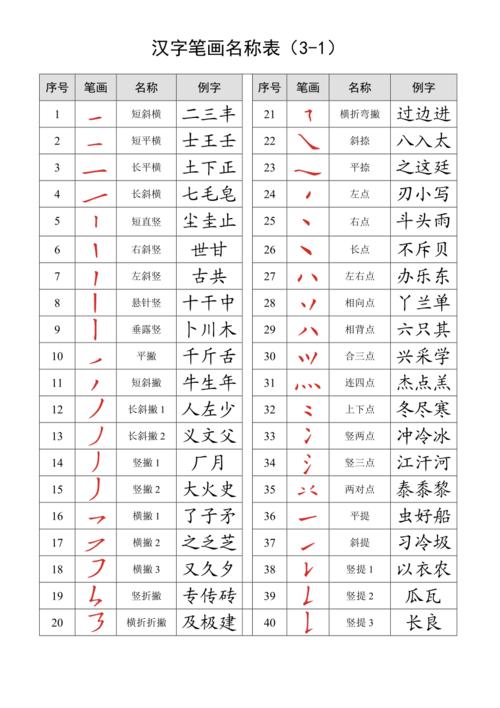 汉字笔画名称表（3-1）
序号 笔画 名称 例字 序号 笔画 名称 例字
1 短斜横 二三丰 21 横折弯撇 过边进
2 短平横 士王壬 22 斜捺 八入太
3 长平横 土下正 23 平捺 之这廷
4 长斜横 七毛皂 24 左点 刃小写
5 短直竖 尘圭止 25 右点 斗头雨
6 右斜竖 世甘 26 长点 不斥贝
7 左斜竖 古共 27 左右点 办乐东
8 悬针竖 十干中 28 相向点 丫兰单
9 垂露竖 卜川木 29 相背点 六只其
10 平撇 千斤舌 30 合三点 兴采学
11 短斜撇 牛生年 31 连四点 杰点羔
12 长斜撇1 人左少 32 上下点 冬尽寒
13 长斜撇2 义文父 33 竖两点 冲冷冰
14 竖撇1 厂月 34 竖三点 江汗河
15 竖撇2 大火史 35 两对点 泰黍黎
16 横撇1 了子矛 36 平提 虫好船
17 横撇2 之乏芝 37 斜提 习冷圾
18 横撇3 又久夕 38 竖提1 以衣农
19 竖折撇 专传砖 39 竖提2 瓜瓦
20 横折折撇 及极建 40 竖提3 长良